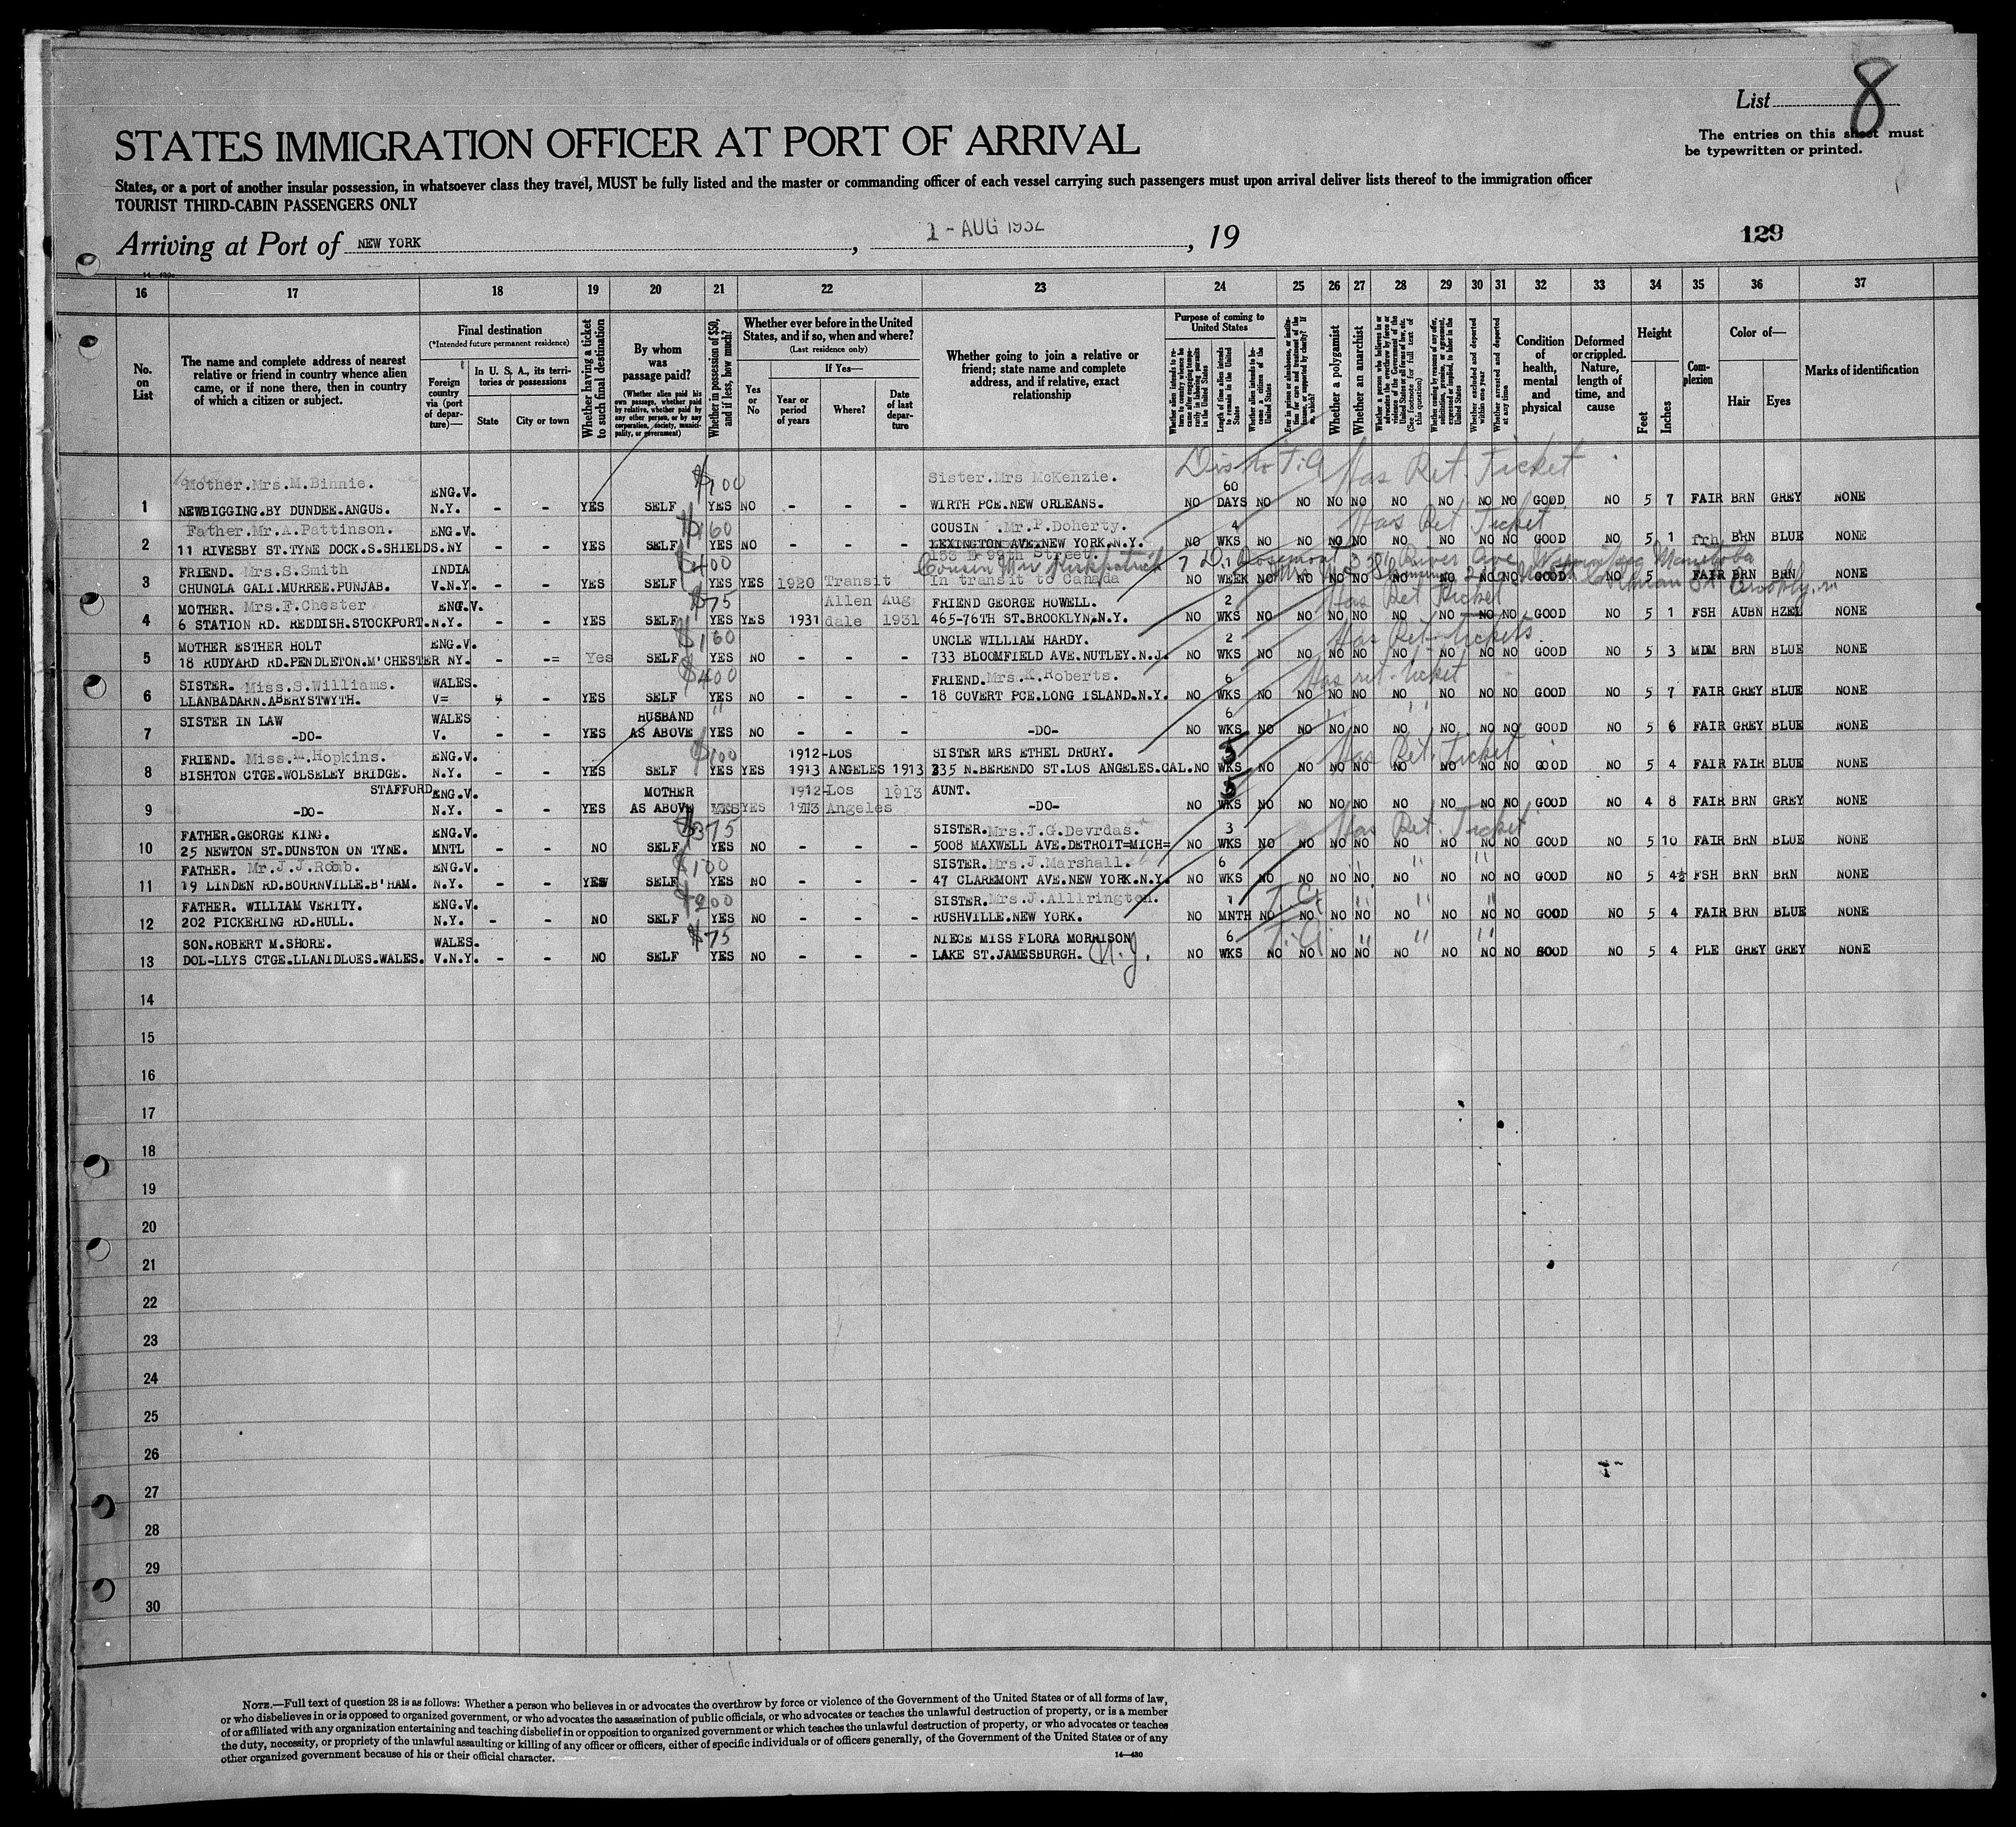 List 8
The entries on this sheet must
be typewritten or printed.
STATES IMMIGRATION OFFICER AT PORT OF ARRIVAL
States, or a port of another insular possession, in whatsoever class they travel, MUST be fully listed and the master or commanding officer of each vessel carrying such passengers must upon arrival deliver lists thereof to the immigration officer
TOURIST THIRD-CABIN PASSENGERS ONLY
Arriving at Port of NEW YORK, 1 - AUG 1932, 19
129
16 17 18 19 20 21 22 23 24 25 26 27 28 29 30 31 32 33 34 35 36 37
No. on List
The name and complete address of nearest relative or friend in country whence alien came, or if none there, then in country of which a citizen or subject.
Final destination
(*Intended future permanent residence)
Foreign country via (port of departure)—
In U. S. A., its territories or possessions
State
City or town
Whether having a ticket to such final destination
By whom was passage paid?
(Whether alien paid his own passage, whether paid by relative, whether paid by any other person, or by any corporation, society, municipality, or government)
Whether in possession of $50, and if less, how much?
Whether ever before in the United States, and if so, when and where?
(Last residence only)
Yes or No
If Yes—
Year or period of years
Where?
Date of last departure
Whether going to join a relative or friend; state name and complete address, and if relative, exact relationship
Purpose of coming to United States
Length of time alien intends to remain in the United States
Whether alien intends to become a citizen of the United States
Whether a polygamist
Whether an anarchist
(See footnote for full text of this question)
Whether excluded and deported within one year
Whether arrested and deported at any time
Condition of health, mental and physical
Deformed or crippled. Nature, length of time, and cause
Height
Feet
Inches
Complexion
Color of—
Hair
Eyes
Marks of identification
Mother.Mrs.M.Binnie. $100 Sister.Mrs McKenzie. 60 Has Ret. Ticket
1 NEWBIGGING.BY DUNDEE.ANGUS. ENG.V. N.Y. - - YES SELF YES NO - - - WIRTH PCE.NEW ORLEANS. NO DAYS NO NO NO NO NO NO NO NO GOOD NO 5 7 FAIR BRN GREY NONE
Father.Mr.A.Pattinson. ENG.V. $160 COUSIN .Mr.P.Doherty. 4 Has Ret. Ticket
2 11 RIVESBY ST.TYNE DOCK.S.SHIELDS.NY - - YES SELF YES NO - - - LEXINGTON AVE.NEW YORK.N.Y. NO WKS NO NO NO NO NO NO NO NO GOOD NO 5 1 frh BRN BLUE NONE
153 E 99th Street.
FRIEND. Mrs.S.Smith INDIA $400 Cousin Mr Kirkpatrick 1 River Ave Winnipeg Manitoba
3 CHUNGLA GALI.MURREE.PUNJAB. V.N.Y. - - YES SELF YES YES 1920 Transit In transit to Canada NO WEEK NO NO NO NO NO NO NO NO GOOD NO 5 FAIR BRN BRN NONE
Brooklyn
MOTHER. Mrs.F.Chester ENG.V. $75 Allen Aug FRIEND GEORGE HOWELL. 2 Has Ret Ticket
4 6 STATION RD. REDDISH.STOCKPORT.N.Y. - - YES SELF YES YES 1931 dale 1931 465-76TH ST.BROOKLYN.N.Y. NO WKS NO NO NO NO NO NO NO NO GOOD NO 5 1 FSH AUBN HZEL NONE
MOTHER ESTHER HOLT ENG.V. $160 UNCLE WILLIAM HARDY. 2 Has Ret Tickets
5 18 RUDYARD RD.PENDLETON.M'CHESTER NY. - -= Yes SELF YES NO - - - 733 BLOOMFIELD AVE.NUTLEY.N.J. NO WKS NO NO NO NO NO NO NO NO GOOD NO 5 3 MDM BRN BLUE NONE
SISTER. Miss.S.Williams. WALES. $400 FRIEND.Mrs.K.Roberts. 6 Has ret. ticket
6 LLANBADARN.ABERYSTWYTH. V= - - YES SELF YES NO - - - 18 COVERT PCE.LONG ISLAND.N.Y. NO WKS NO NO NO NO NO NO NO NO GOOD NO 5 7 FAIR GREY BLUE NONE
SISTER IN LAW WALES HUSBAND " 6 " "
7 -DO- V. - - YES AS ABOVE YES NO - - - -DO- NO WKS NO NO NO NO NO NO NO NO GOOD NO 5 6 FAIR GREY BLUE NONE
FRIEND. Miss.M.Hopkins. ENG.V. $100 1912-LOS SISTER MRS ETHEL DRURY. 5 Has Ret. Ticket
8 BISHTON CTGE.WOLSELEY BRIDGE. N.Y. - - YES SELF YES YES 1913 ANGELES 1913 235 N.BERENDO ST.LOS ANGELES.CAL. NO WKS NO NO NO NO NO NO NO NO GOOD NO 5 4 FAIR FAIR BLUE NONE
STAFFORD. ENG.V. MOTHER 1912-Los 1913 AUNT. 5
9 -DO- N.Y. - - YES AS ABOVE YES YES 1913 Angeles -DO- NO WKS NO NO NO NO NO NO NO NO GOOD NO 4 8 FAIR BRN GREY NONE
FATHER.GEORGE KING. ENG.V. $375 SISTER.Mrs.J.G.Devrdas. 3 Has Ret. Ticket
10 25 NEWTON ST.DUNSTON ON TYNE. MNTL - - NO SELF YES NO - - - 5008 MAXWELL AVE.DETROIT=MICH= NO WKS NO NO NO NO NO NO NO NO GOOD NO 5 10 FAIR BRN BLUE NONE
FATHER. Mr.J.J.Romb. ENG.V. $100 SISTER.Mrs.J.Marshall. 6 " " "
11 19 LINDEN RD.BOURNVILLE.B'HAM. N.Y. - - YES SELF YES NO - - - 47 CLAREMONT AVE.NEW YORK.N.Y. NO WKS NO NO NO NO NO NO NO NO GOOD NO 5 4½ FSH BRN BRN NONE
FATHER. WILLIAM VERITY. ENG.V. $200 SISTER.Mrs.J.Alllrington. 1 " " "
12 202 PICKERING RD.HULL. N.Y. - - NO SELF YES NO - - - RUSHVILLE.NEW YORK. NO MNTH NO NO NO NO NO NO NO NO GOOD NO 5 4 FAIR BRN BLUE NONE
SON.ROBERT M.SHORE. WALES. $75 NIECE MISS FLORA MORRISON 6 " " "
13 DOL-LLYS CTGE.LLANIDLOES.WALES. V.N.Y. - - NO SELF YES NO - - - LAKE ST.JAMESBURGH. N.J. NO WKS NO NO NO NO NO NO NO NO GOOD NO 5 4 PLE GREY GREY NONE
14
15
16
17
18
19
20
21
22
23
24
25
26
27
28
29
30
NOTE.—Full text of question 28 is as follows: Whether a person who believes in or advocates the overthrow by force or violence of the Government of the United States or of all forms of law,
or who disbelieves in or is opposed to organized government, or who advocates the assassination of public officials, or who advocates or teaches the unlawful destruction of property, or is a member
of or affiliated with any organization entertaining and teaching disbelief in or opposition to organized government or which teaches the unlawful destruction of property, or who advocates or teaches
the duty, necessity, or propriety of the unlawful assaulting or killing of any officer or officers, either of specific individuals or of officers generally, of the Government of the United States or of any
other organized government because of his or their official character.
14—430